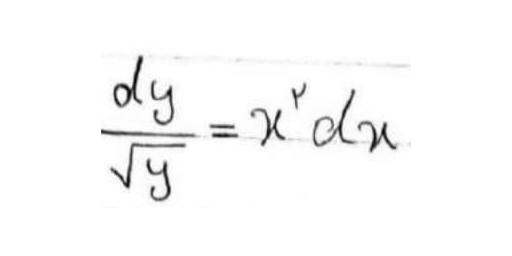 dy/√y = x^۲ dx